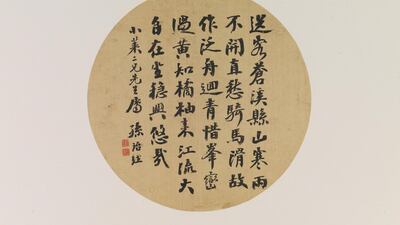 送客蒼溪縣山寒雨
不開直愁騎馬滑故
作泛舟迴青惜峯巒
過黃知橘柚来江流大
自在坐穩興悠哉
小萊二兄先生屬 孫詒經